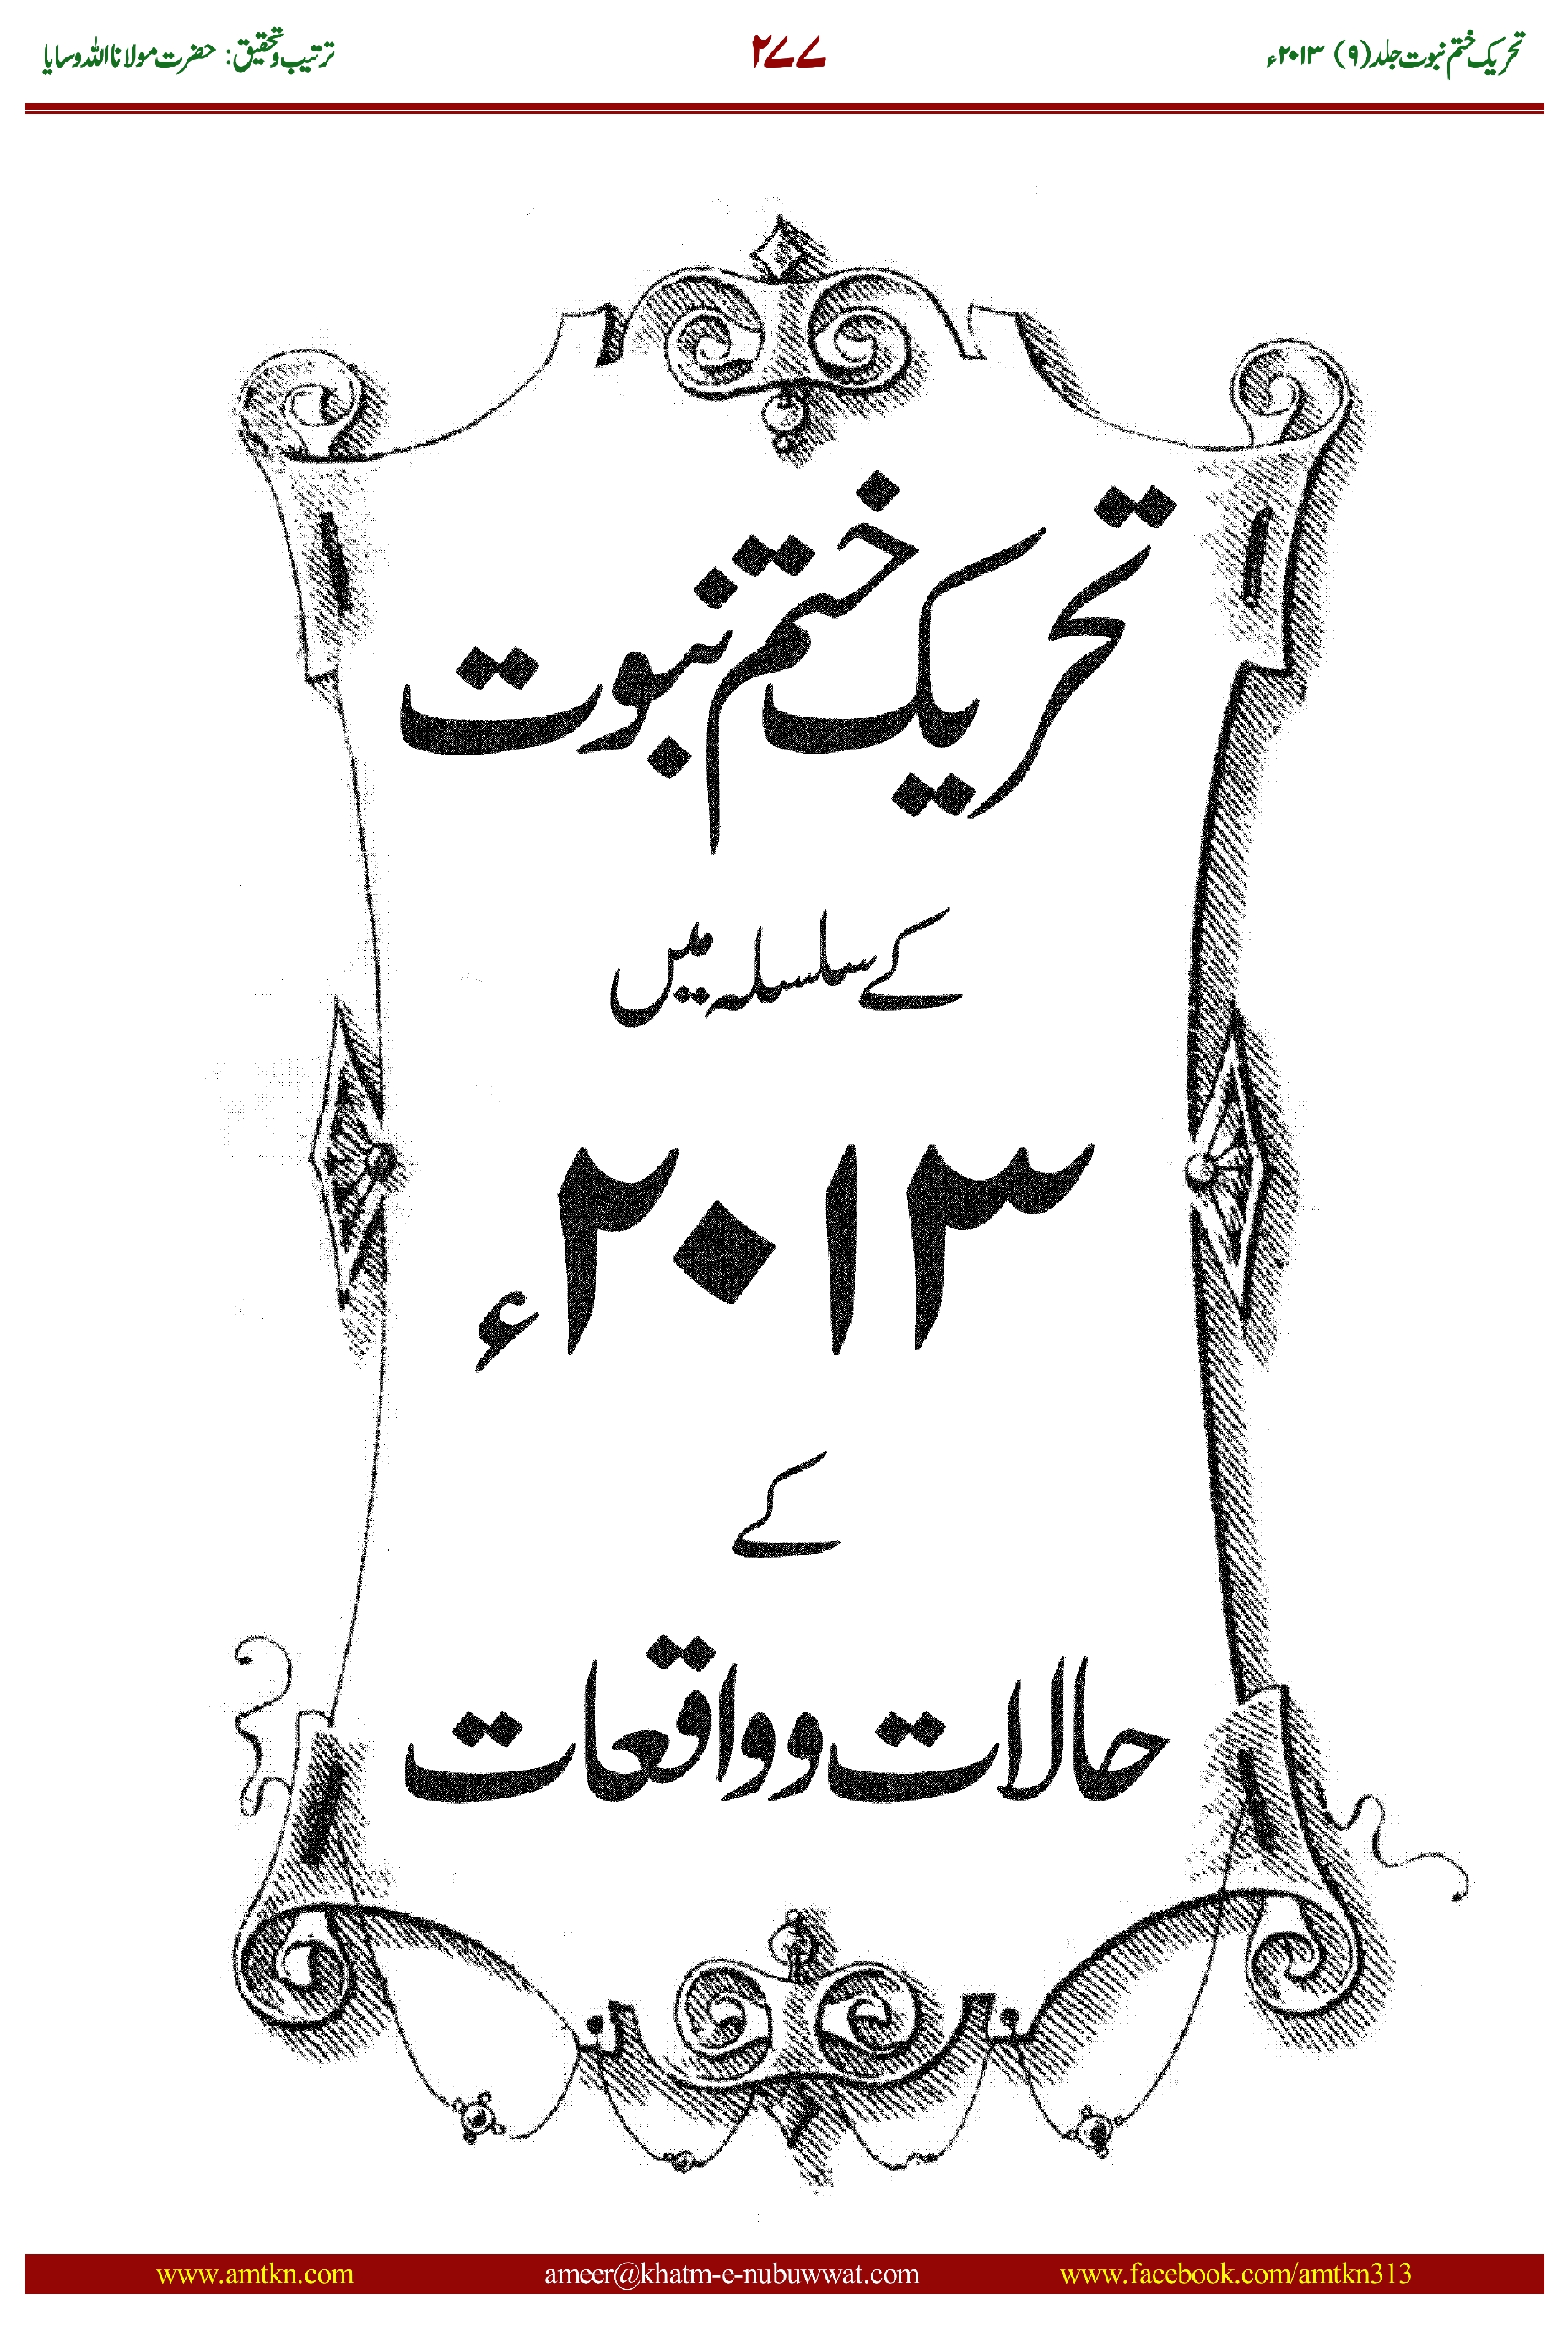 تحریک ختم نبوت جلد (۹) ۲۰۱۳ء ۲۷۷ ترتیب و تحقیق: حضرت مولانا اللہ وسایا
تحریک ختم نبوت
کے سلسلہ میں
۲۰۱۳ء
کے
حالات و واقعات
www.amtkn.com ameer@khatm-e-nubuwwat.com www.facebook.com/amtkn313